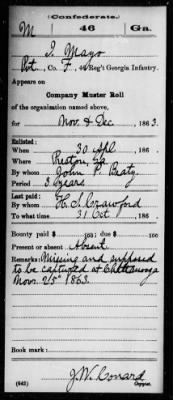 Confederate.
M 46 Ga.
J. Mayo
Pvt., Co. F, 46 Reg't Georgia Infantry.
Appears on
Company Muster Roll
of the organization named above,
for Nov & Dec, 1863.
Enlisted:
When 30 Apl, 186 .
Where Preston, Ga
By whom John P. Beaty
Period 3 years
Last paid:
By whom H. S. Crawford
To what time 31 Oct, 186 .
Bounty paid $ 100; due $ 100
Present or absent Absent
Remarks: Missing and supposed
to be captured at Chattanooga
Nov. 25" 1863.
Book mark:
J. W. Conard
(642) Copyist.